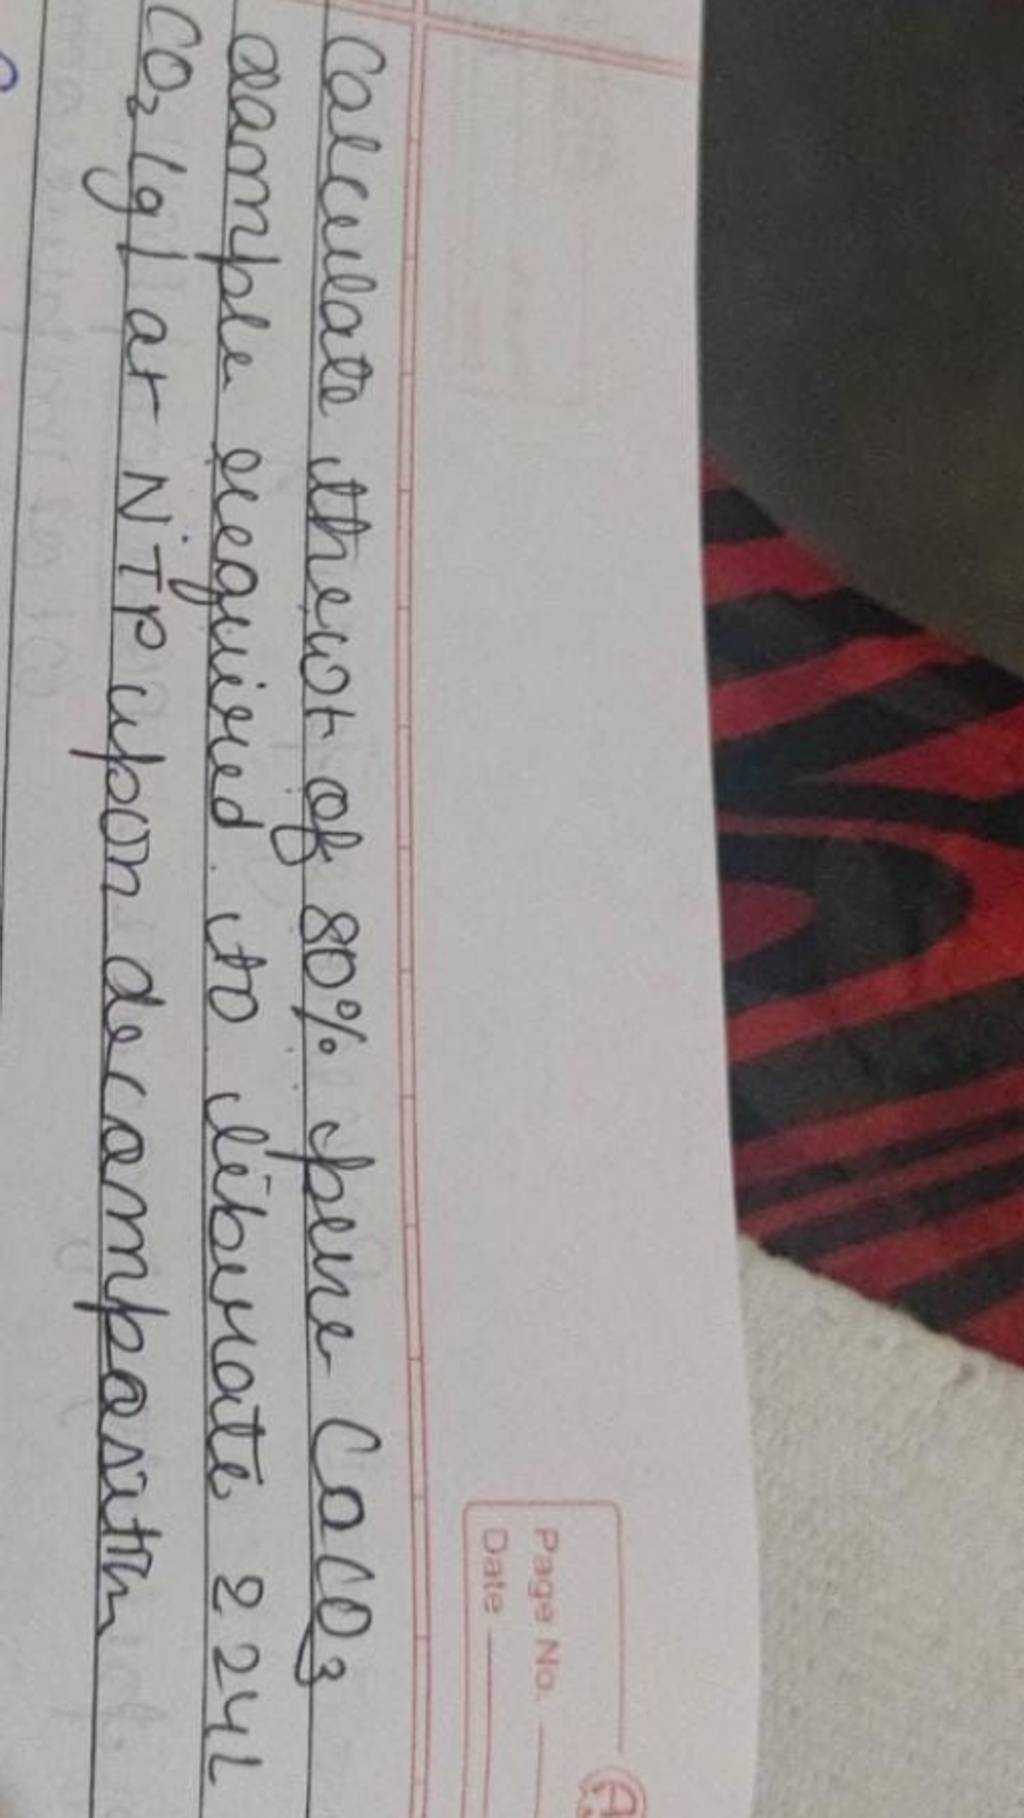 Page No.
Date
Calculate the wt of 80% pure CaCO3
sample required to liberate 224L
CO2 (g) at NTP upon decomposition